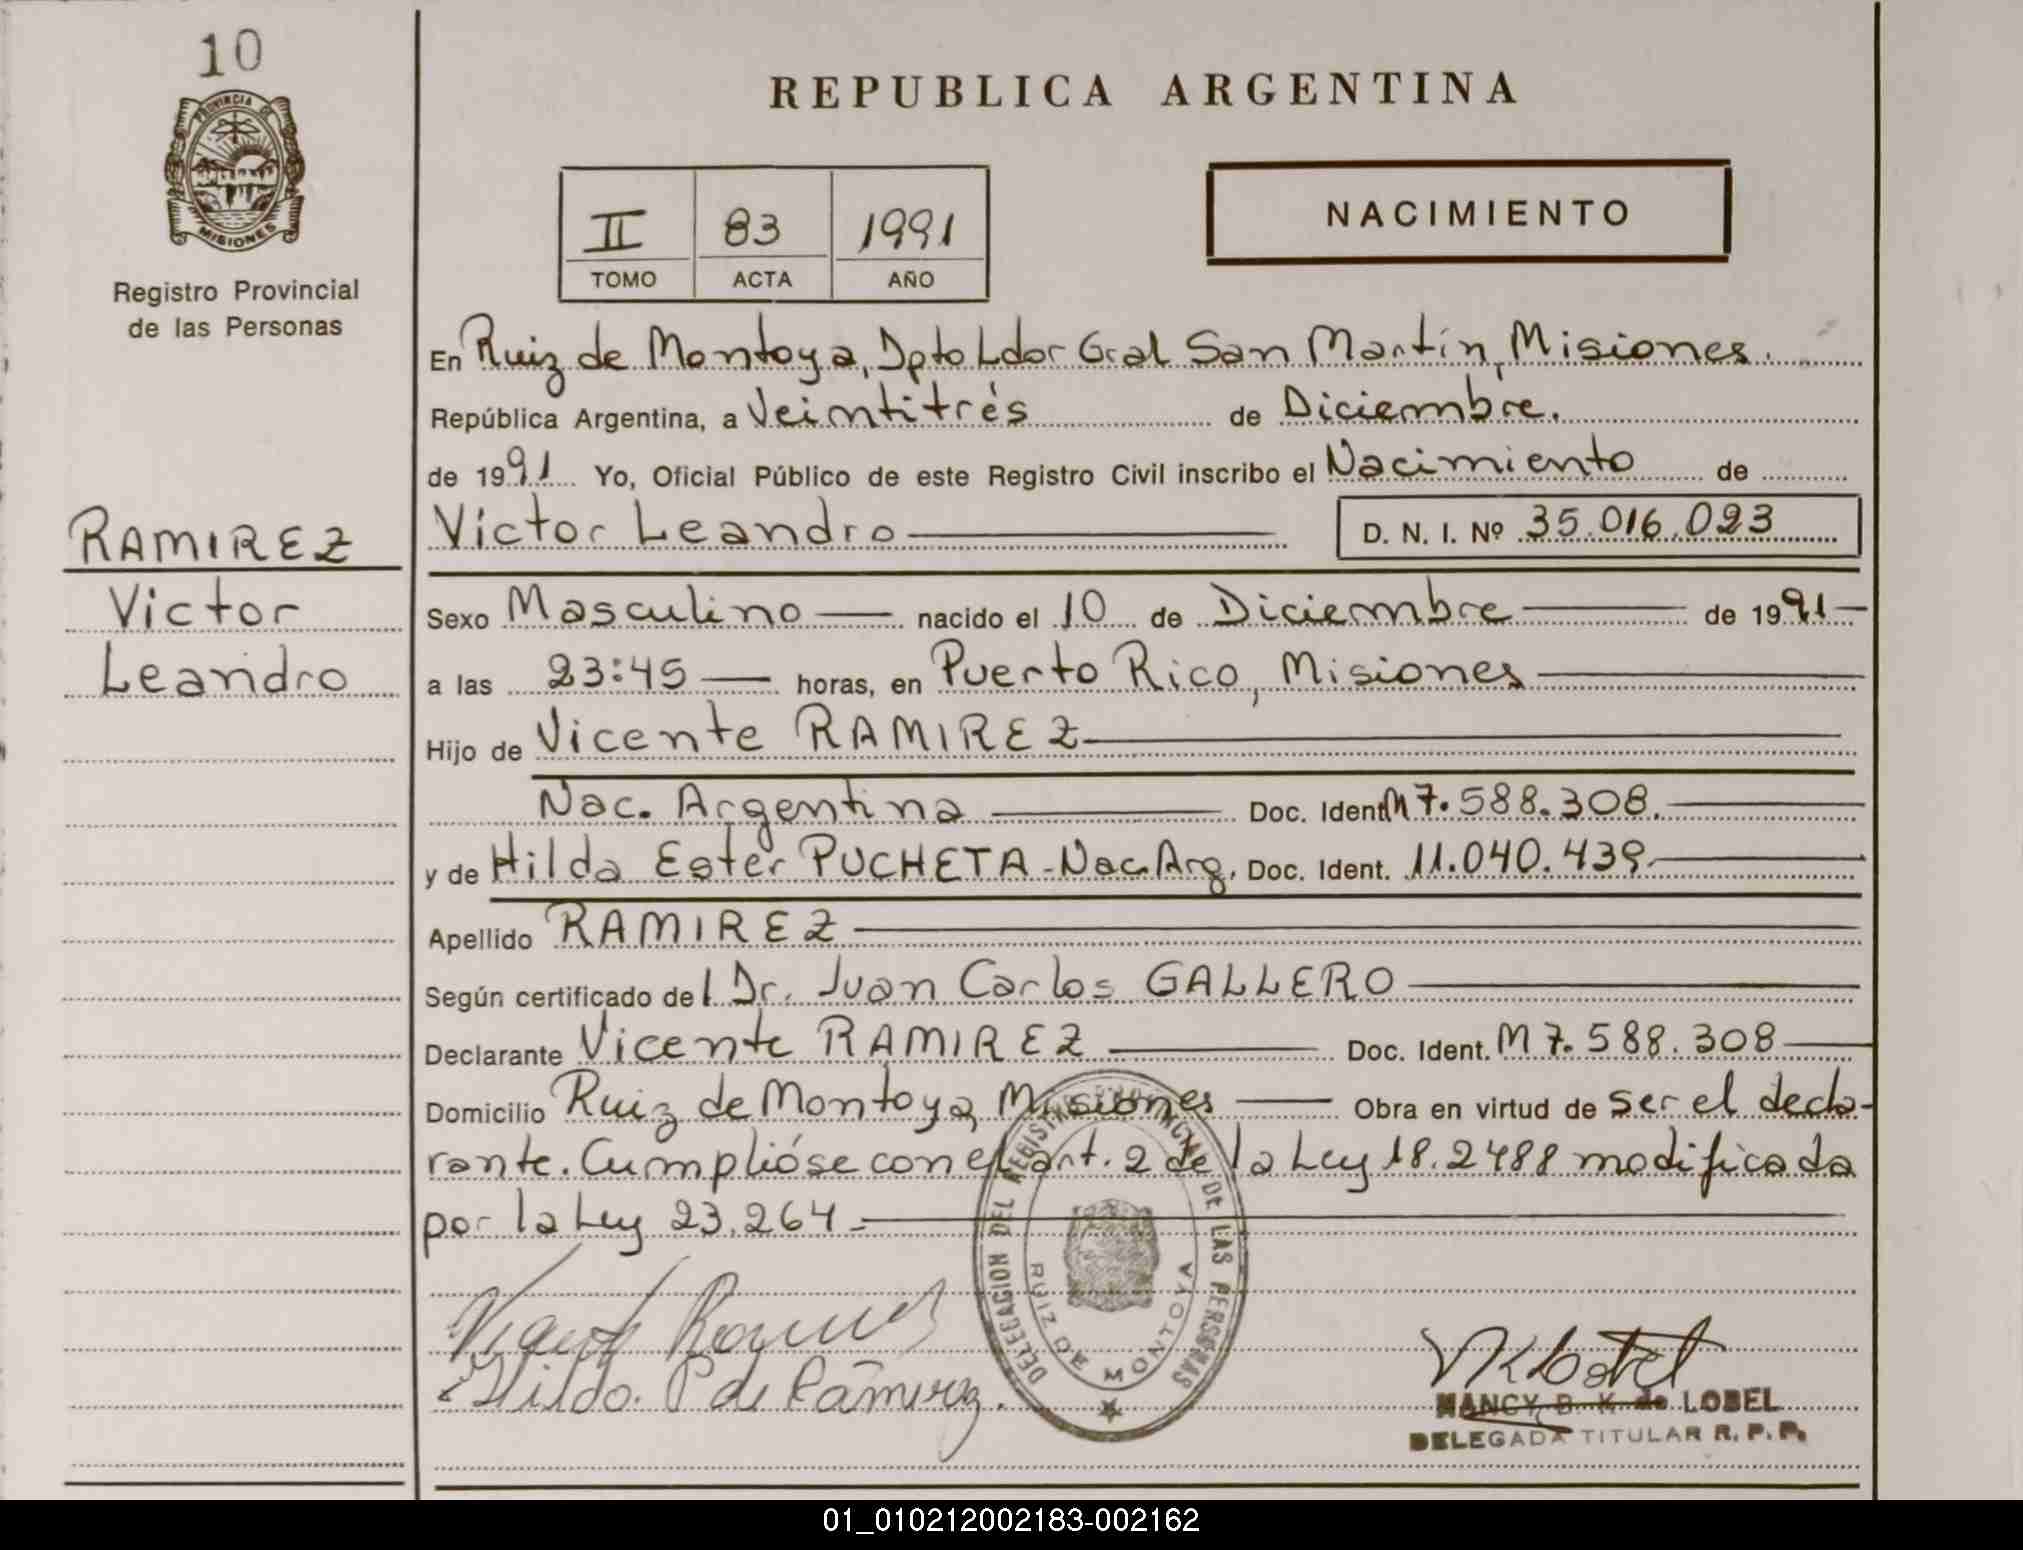 10
PROVINCIA DE
MISIONES
Registro Provincial
de las Personas
RAMIREZ
Victor
Leandro
REPUBLICA ARGENTINA
II 83 1991
TOMO ACTA AÑO
NACIMIENTO
En Ruiz de Montoya, Dpto Ldor Gral San Martín, Misiones.
República Argentina, a Veintitrés de Diciembre.
de 1991 Yo, Oficial Público de este Registro Civil inscribo el Nacimiento de
Victor Leandro D. N. I. Nº 35.016.023
Sexo Masculino nacido el 10 de Diciembre de 1991
a las 23:45 horas, en Puerto Rico, Misiones
Hijo de Vicente RAMIREZ
Nac. Argentina Doc. Ident. M 7.588.308.
y de Hilda Ester PUCHETA - Nac. Arg. Doc. Ident. 11.040.439
Apellido RAMIREZ
Según certificado del Dr. Juan Carlos GALLERO
Declarante Vicente RAMIREZ Doc. Ident. M 7.588.308
Domicilio Ruiz de Montoya, Misiones Obra en virtud de ser el decla-
rante. Cumplióse con el art. 2 de la Ley 18.2488 modificada
por la Ley 23.264.-
DELEGACION DEL REGISTRO PROVINCIAL DE LAS PERSONAS
RUIZ DE MONTOYA
Hilda P de Ramirez.
NANCY B. K. de LOBEL
DELEGADA TITULAR R. P. P.
01_010212002183-002162